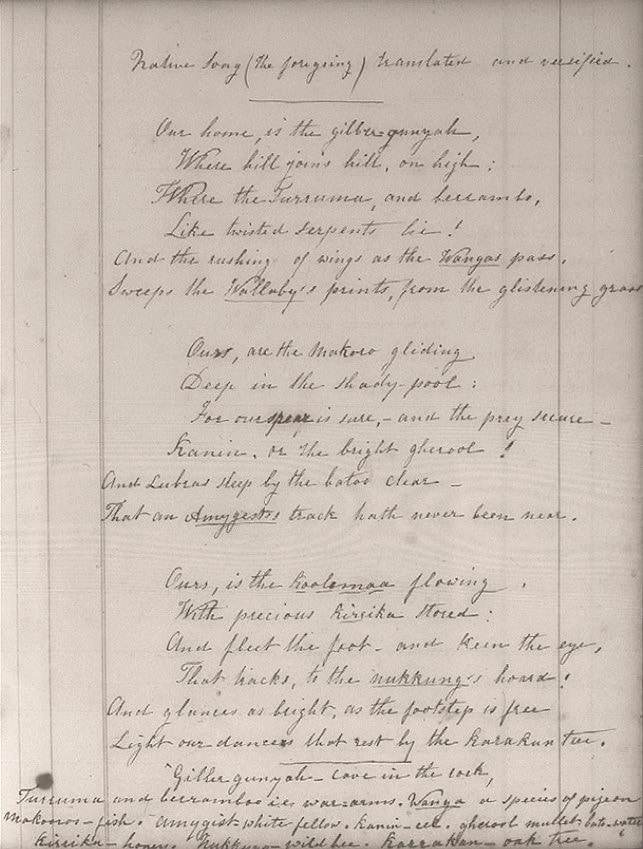 Native Song (the foregoing) translated and versified.
Our home, is the gilber-gunyah,
Where hill joins hill, on high:
Where the Turruma, and berrambo,
Like twisted serpents lie!
And the rushing of wings as the Wangas pass,
Sweeps the Wallaby's prints, from the glistening grass
Ours, are the Makoro gliding
Deep in the shady pool:
For our spear is sure, - and the prey secure -
Kanin, or the bright gherool!
And Lubras sleep by the batoo clear -
That an Amygests track hath never been near.
Ours, is the Koolemaa flowing,
With precious Kirrika stored:
And fleet the foot - and keen the eye,
That tracks, to the nukkung's hoard!
And glances as bright, as the footstep is free
Light our dancers that rest by the Karakun tree.
Gilber gunyah - cave in the rock,
Turruma and berramboo i.e. war-arms. Wanga a species of pigeon
Makooros - fish. Amygist white fellow. Kanin - eel. gherool mullet. bato - water
Kirrika - honey. Nukkung - wild bee. Karrakun - oak tree.